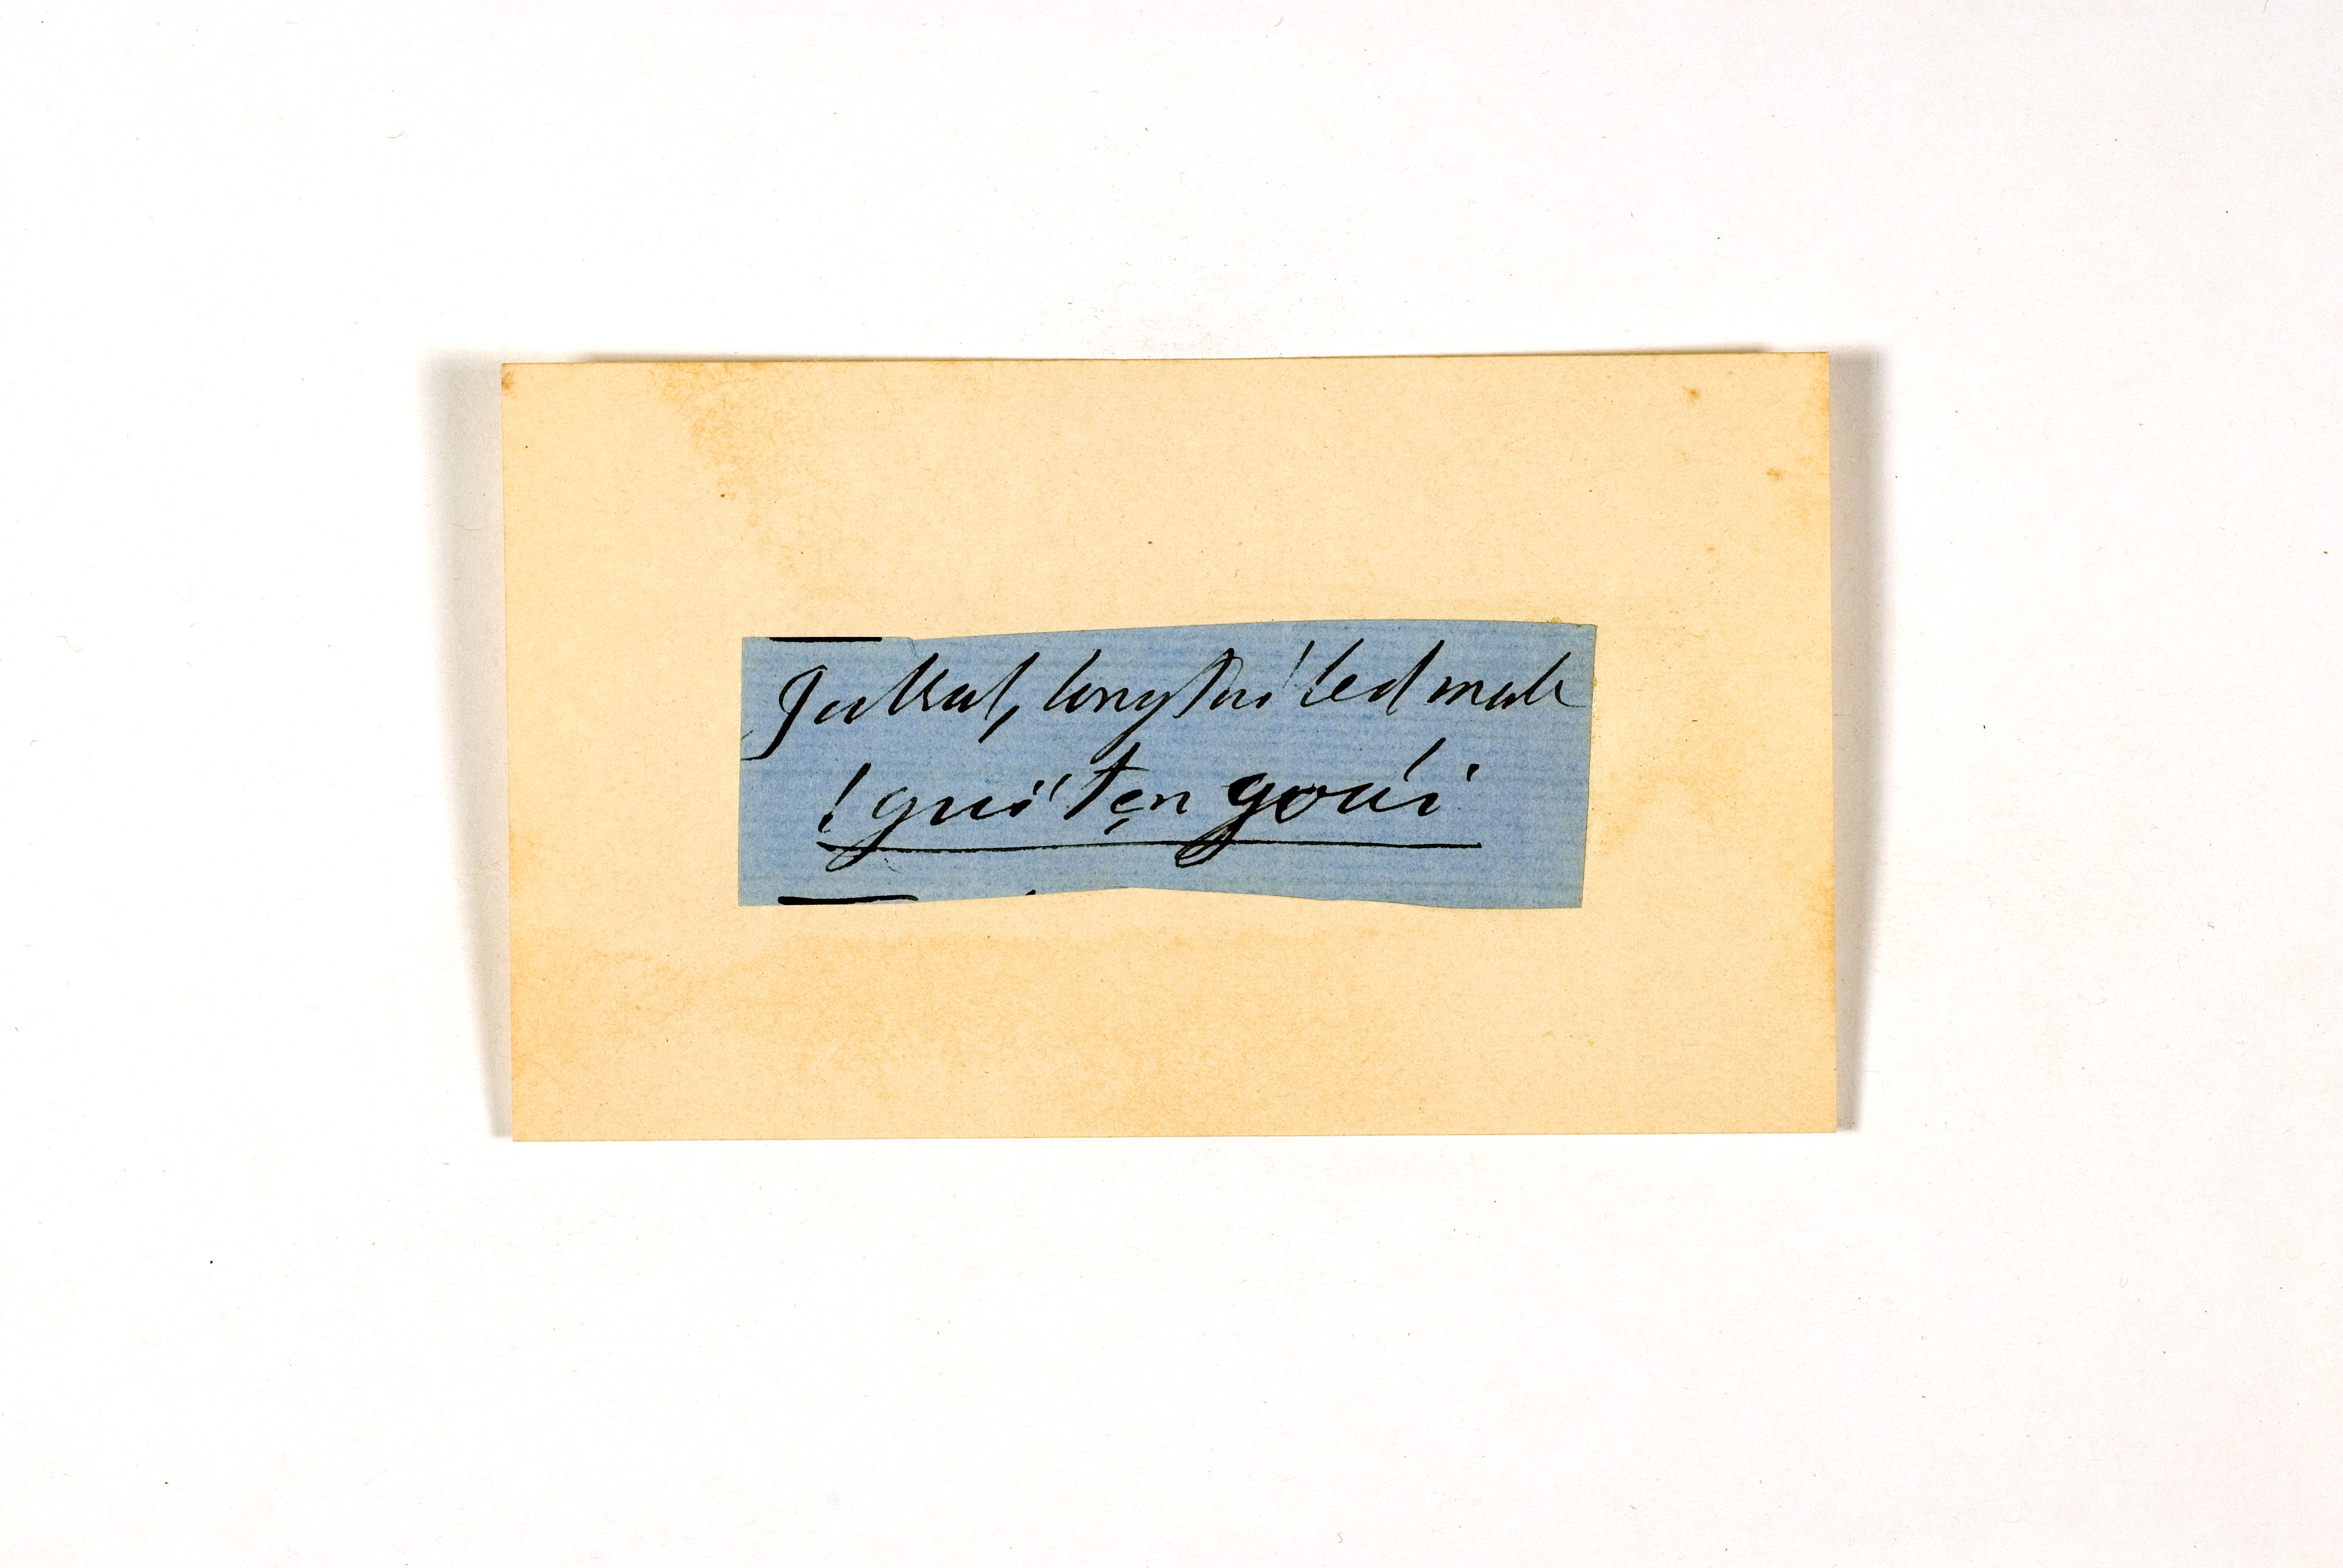 Jackal, longtailed male
!gui ten goúi